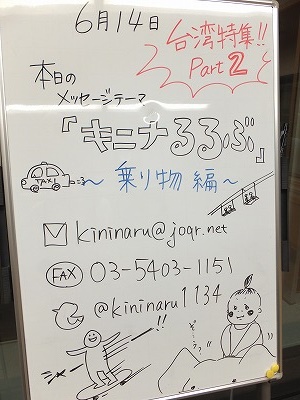 6月14日
台湾特集!!
Part 2
本日の
メッセージテーマ
『キニナるるぶ』
TAXI
〜乗り物編〜
kininaru@joqr.net
FAX 03-5403-1151
@kininaru1134
!!